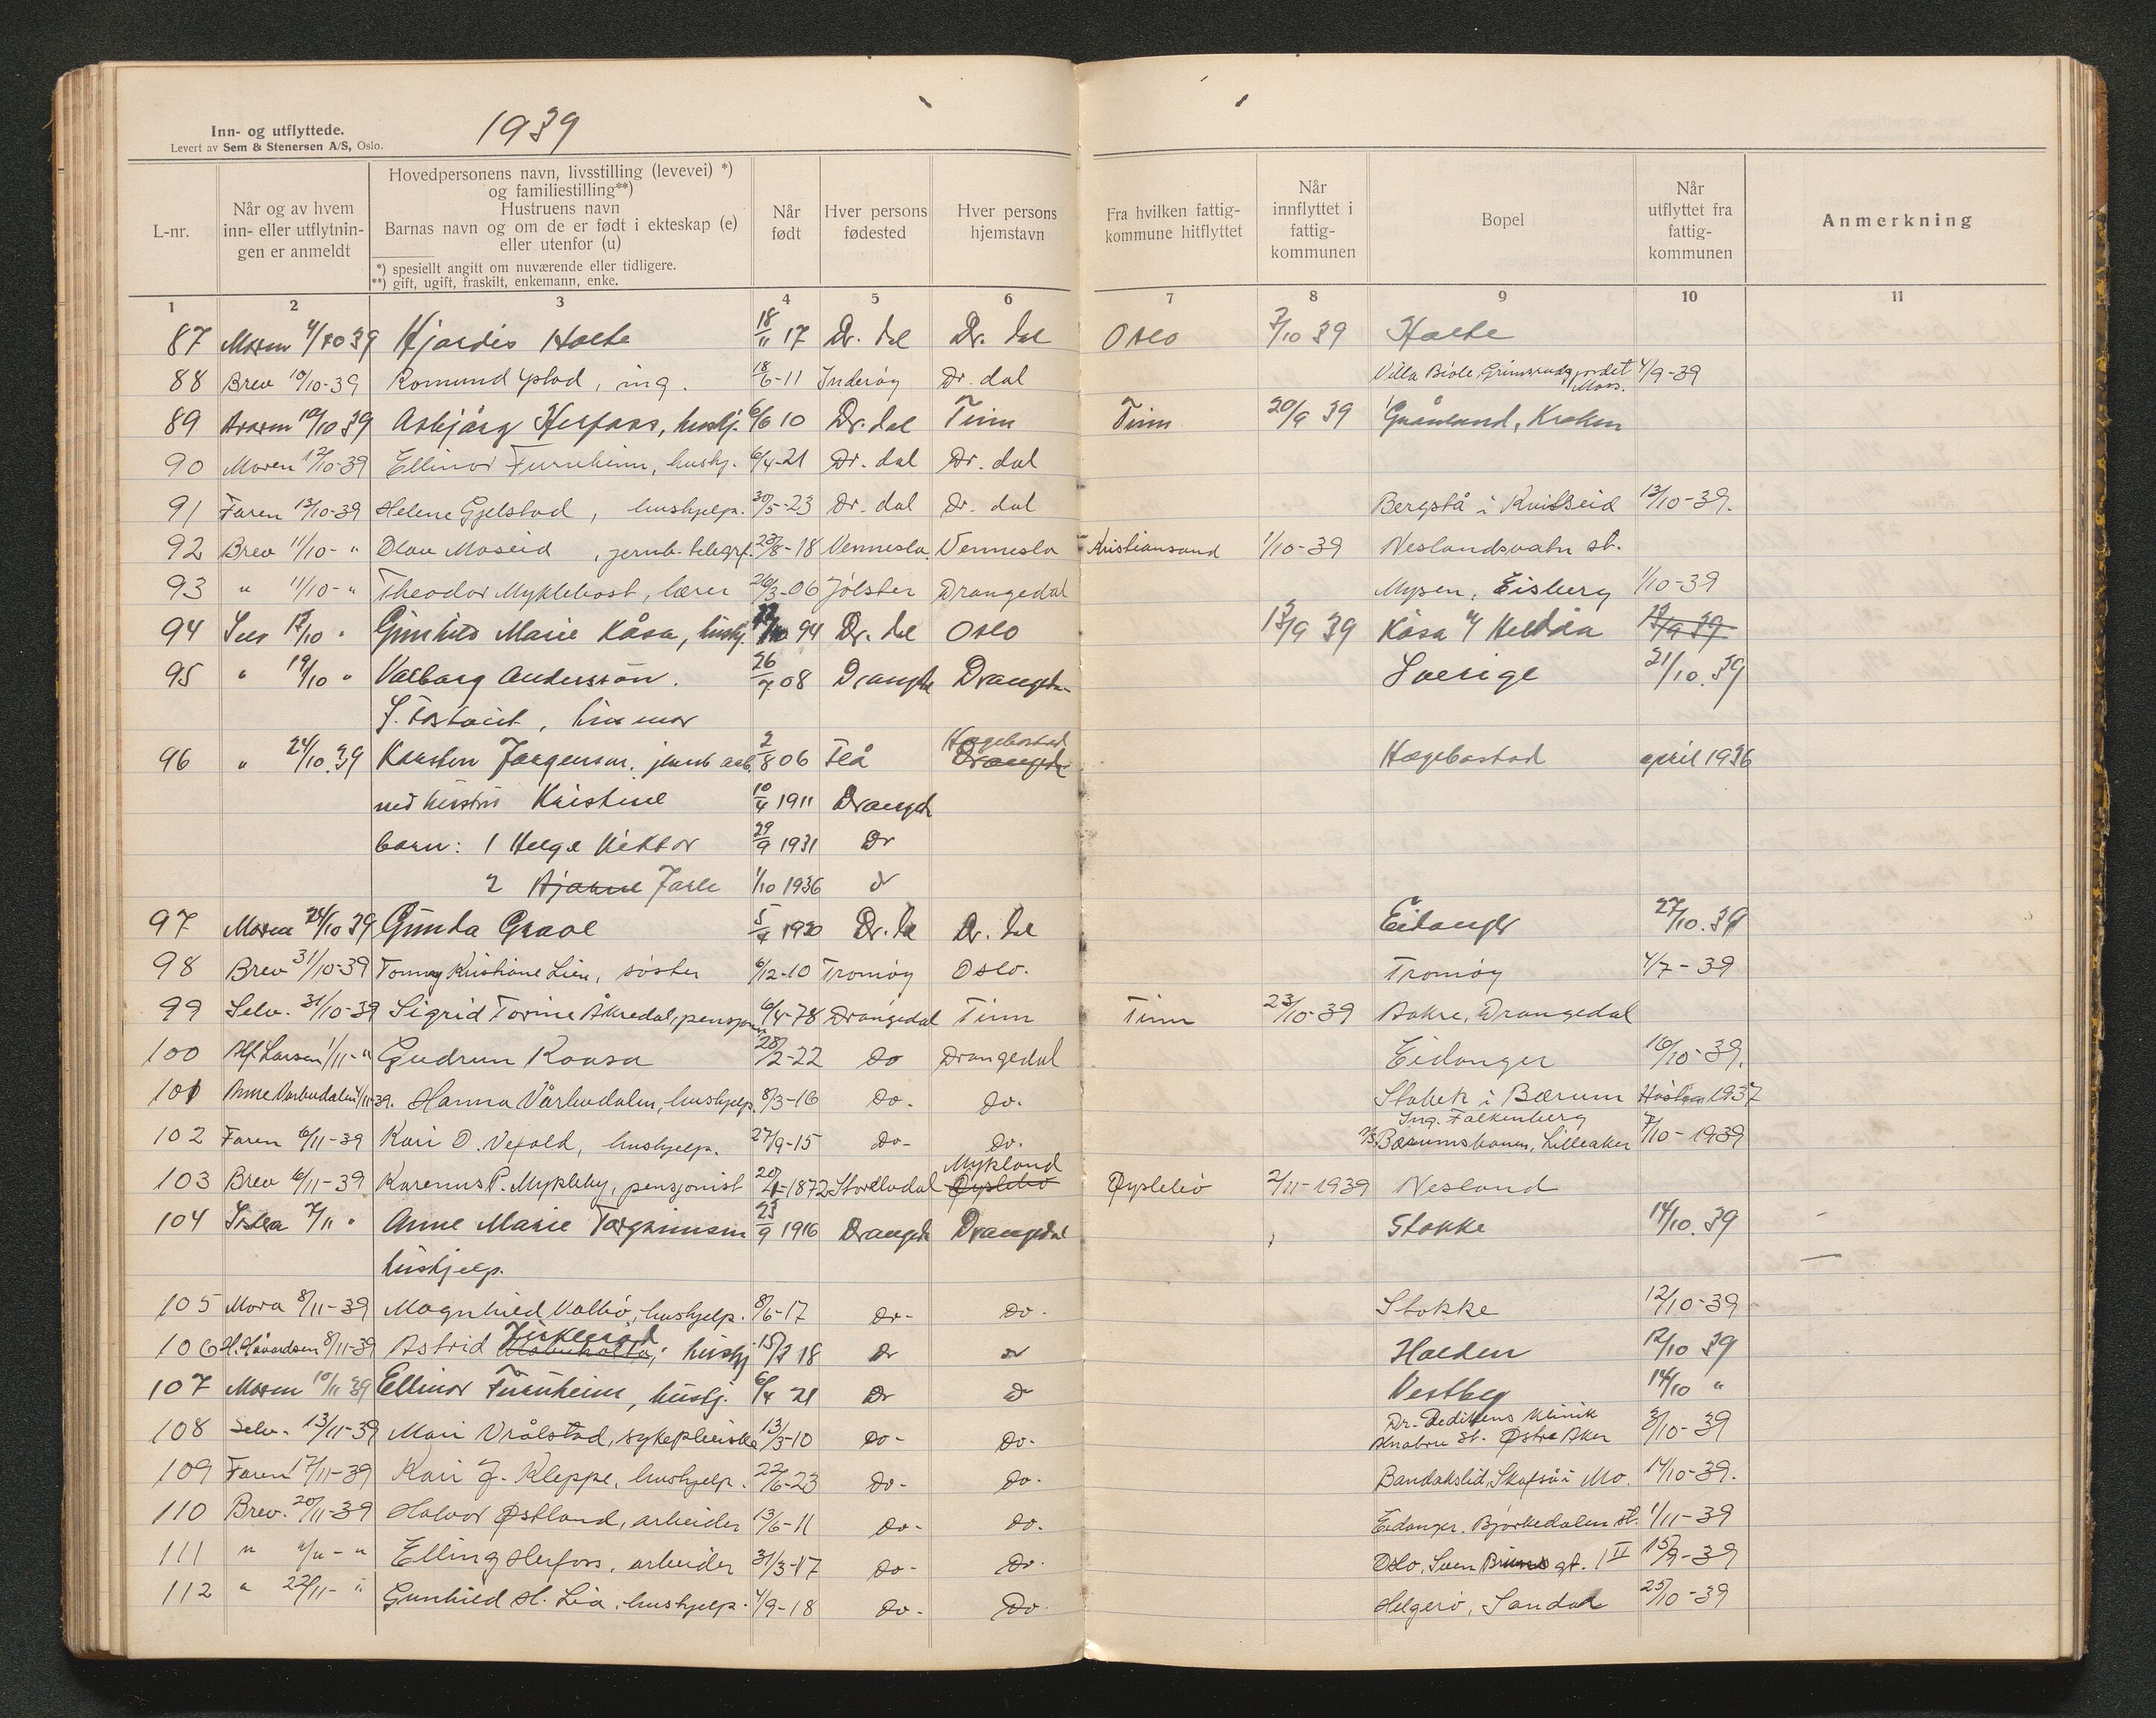 1939
Inn- og utflyttede.
Levert av Sem & Stenersen A/S, Oslo.
L-nr.
Når og av hvem inn- eller utflytnin- gen er anmeldt
Hovedpersonens navn, livsstilling (levevei) *)
og familiestilling**)
Hustruens navn
Barnas navn og om de er født i ekteskap (e)
eller utenfor (u)
*) spesiellt angitt om nuværende eller tidligere.
**) gift, ugift, fraskilt, enkemann, enke.
Når født
Hver persons fødested
Hver persons hjemstavn
Fra hvilken fattig- kommune hitflyttet
Når innflyttet i fattig- kommunen
Bopel
Når utflyttet fra fattig- kommunen
Anmerkning
1 2 3 4 5 6 7 8 9 10 11
87 Moren 4/10 39 Hjørdis Holte 18/11 17 Dr. dal Dr. dal Oslo 3/10 39 Holte
88 Brev 10/10-39 Romund , ing. 18/6-11 Inderøy Dr. dal Villa Grimsrudgjordet Moss. 4/9-39
89 10/10 39 Asbjørg Herfoss, hushj. 6/6 10 Dr. dal Tinn Tinn 20/9 39 Kroken
90 Moren 12/10-39 Ellinor Furuheim, hushj. 6/4-21 Dr. dal Dr. dal
91 Faren 13/10-39 Helene Gjelstad, hushjelp. 30/5-23 Dr. dal Dr. dal Bergstå i Kviteseid 13/10-39.
92 Brev 11/10- " Olav Moseid, jernb. telegrf. 23/8-18 Vennesla Vennesla Kristiansand 1/10-39 Neslandsvatn st.
93 " 11/10- " Theodor Myklebost, lærer 26/3-06 Jølster Drangedal Mysen, Eisberg 1/10-39
94 17/10 " Gunhild Marie Kåsa, hushj. 94 Dr. dal Oslo 13/9 39 Kåsa 13/9 39
95 " 19/10 " Valborg Anderssøn. 26/7 08 Drangdl Drangdal Sverige 21/10. 39
f. Tostveit, husmor
96 " 24/10. 39 Karsten Jørgensen. jernb arb. 2/8 06 Flå Hægebostad Drangdl Hægebostad april 1936
med hustru Kristine 10/4 1911 Drangdl
barn: 1 Helge Viktor 29/9 1931 Dr
2 Jarle 1/10 1936 d
97 Moren 24/10 39 Gunda Grave 5/7 1920 Dr. dal Dr. dal Eidanger 27/10. 39
98 Brev 31/10-39 Tonny Kristiane Lien, søster 6/12-10 Tromøy Oslo. Tromøy 4/7-39
99 Selv. 31/10-39 Sigrid Torine Åkredal, pensjon 6/4-78 Drangedal Tinn Tinn 23/10-39 Aakre, Drangedal
100 Alf Larsen 1/11- " Gudrun Kaasa 28/2-22 do Drangedal Eidanger 16/10-39.
101 4/11 39. Hanna Vårbudalen, hushjelp. 8/3-16 do. do. Stabek i Bærum Høsten 1937
102 Faren 6/11-39 Kari O. Vefald, hushjelp. 27/9-15 do- do. Ing. Falkenberg Bærumsbanen, Lilleaker 7/10-1939
103 Brev 6/11-39 Karenus P. Mykleby, pensjonist 20/4-1872 Storelvdal Mykland Øyslebø Øyslebø 2/11-1939 Nesland
104 7/11 " Anne Marie Torgrimsen 23/9 1916 Drangdl Drangedal Stokke 14/10. 39
hushjelp.
105 Mora 8/11-39 Magnhild Valbø, hushjelp. 8/6-17 do- do. Stokke 12/10-39
106 H. Håvardsen 8/11-39 Astrid hushj. 15/7 18 do do Halden 12/10 39
107 Moren 10/11 39 Ellinor Furuheim, hushj. 6/4 21 Dr do Vestby 14/10 "
108 Selv. 13/11-39 Mari Vrålstad, sykepleierske 13/3-10 do- do. Dr. Dedikens Klinik Alnabru st. Østre Aker 3/10-39
109 Faren 17/11-39 Kari J. Kleppe, hushjelp. 22/6-23 do- do. Bandakslid, Skafså i Mo. 14/10-39.
110 Brev. 20/11-39 Halvor Østland, arbeider 13/6-11 do- do. Eidanger. Bjørkedalen st. 1/11-39
111 " "/"- " Elling Herfoss, arbeider 31/3-17 do- do. Oslo, Sven Bruns gt. 1 II 15/9-39
112 " 22/11- " Gunhild H. Lia, hushjelp. 4/9-18 do- do. Helgerø, Sandar 25/10-39